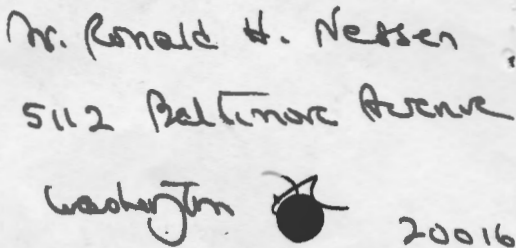 Mr. Ronald H. Nessen
5112 Baltimore Avenue
Washington 20016